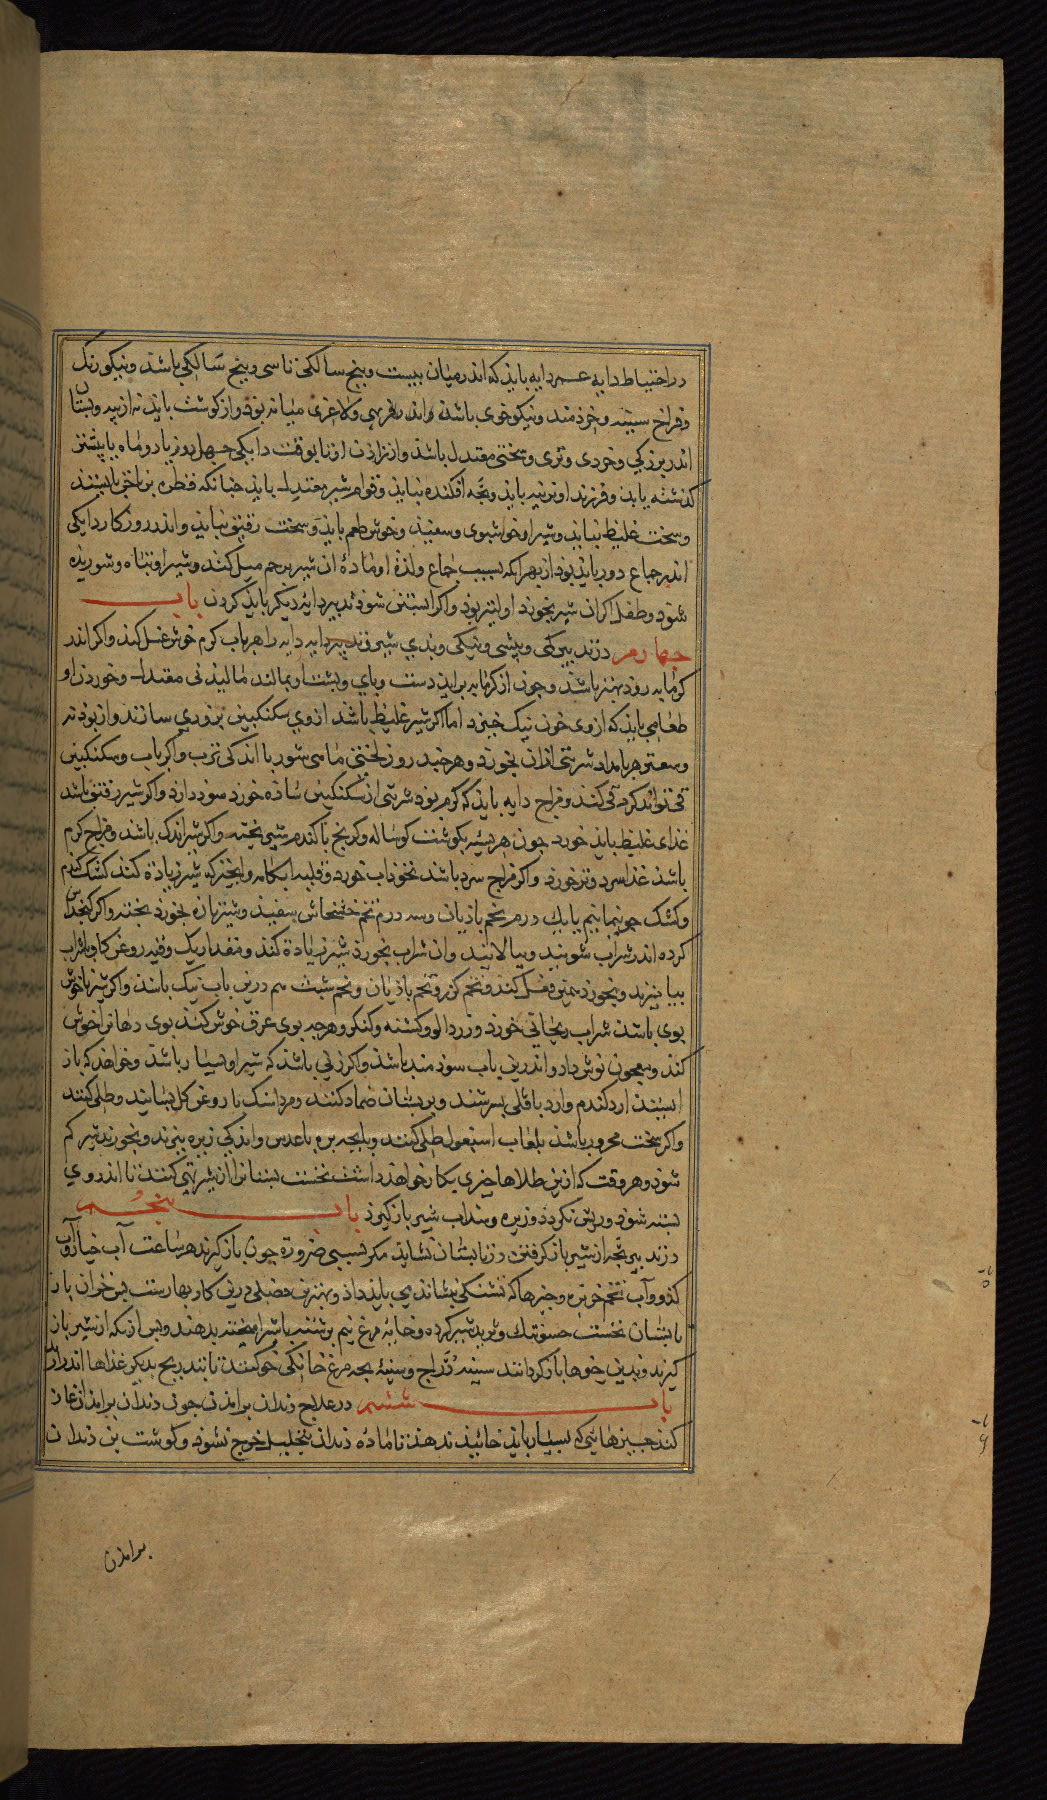 در احتیاط دایه عمر دایه باید که اندر میان بیست و پنج سالکی تا سی و پنج سالکی باشد و نیکو رنک
و فراخ سینه و خردمند و نیکو خوی باشد و اندر فربهی و لاغری میانه بوذ و از کوشت باید نه از پیه و پستان
اندر بزرکی و خردی و نرمی و سختی معتدل باشد و از زادن او تا بوقت دایکی چهل روز یا دو ماه یا پیشتر
کذشته باید و فرزند او نرینه باید و بچه افکنده نباید و قوام شیر معتدل باید چنانکه قطره بر ناخن بایستد
و سخت غلیظ نباید و شیر او خوشبوی و سفید و خوش طعم باید و سخت رقیق نباید و اندر روزکار دایکی
اندر جماع دور باید بوذ از بهر آنکه بسبب جماع و لذة او مادۀ آن شیر برحم میل کند و شیر او تباه و شوریده
شود و طفل اکر آن شیر بخورد او لیتر بود و اکر آبستن شوذ تدبیر دایۀ دیکر باید کردن باب
چهارم در تدبیر کمی و بیشی و نیکی و بدی شیر دایه دایه را هر باب کرم خوش غسل کند و اکر اندر
کرمابه روذ بهتر باشد و چون از کرمابه براید دست و پای و پشت او بمالند مالیدنی معتدل و خوردن او
طعامی باید که از وی خون نیک خیزد اما اکر شیر غلیظ باشد از وی سکنکبین بزوری سازند و از بوذنه
و سعتر هر بامداد شربتی ازان بخورد و هر چند روز لختی ماهی شور با اندکی ترب و اکر باب و سکنکبین
قی تواند کرد قی کند و مزاج دایه باید که کرم بوذ شربتی از سکنکبین ساده خورد سوذ دارد و اکر شیر رقیق باشد
غذای غلیظ باید خورد چون هریسه بکوشت کوساله و کرنج با کندم بشیر پخته و اکر شیر اندک باشد و مزاج کرم
باشد غذا سرد و تر خورد و اکر مزاج سرد باشد نخوذاب خورد و قلیه ابکامه و انچه که شیر زیادة کند کشک کندم
و کشک جو نیمانیم با یک درم تخم باذیان و سه درم تخم خشخاش سفید و شیر تازه بخورد پخته و اکر کنجد آس
کرده اندر شراب شویند و بپالایند و آن شراب بخورد شیر زیادة کند و مقدار یک وقیه روغن کاو با شراب
بیامیزند و بخورد همین فعل کند و تخم کزر و تخم باذیان و تخم شبت هم درین باب نیک باشد و اکر شیر ناخوش
بوی باشد شراب ریحانی خورد و زردالو و کشنه و کنکر و هر چه بوی عرق خوش کند بوی دهانرا خوش
کند و معجون نوش دارو اندرین باب سوذمند باشد و اکر زنی باشد که شیر او بسیار باشد و خواهد که باز
ایستد آرد کندم و آرد باقلی بسرشند و بر پستان ضماد کنند و مرداسنک با روغن کل بسایند و طلی کنند
و اکر سخت محرور باشد بلعاب اسبغول طلی کنند و پایچه بره با عدس و اندکی زیره بپزند و بخورد شیر کم
شوذ و هر وقت که ازین طلاها چیزی بکار خواهد داشت نخست پستانرا از شیر تهی کنند تا اندر وی
بسته نشوذ و ریش نکردد و زیره و سداب شیر باز کیرد باب پنجم
در تدبیر بچه از شیر باز کرفتن در تابستان نشاید مکر بسببی ضرورة چون باز کیرند هر ساعت آب خیار و آب
کدو و آب تخم خرفه و چیزها که تشنکی بنشاند می باید داد و بهترین فصلی درین کار بهارست پس خزان باز
تابستان نخست حسو تنک و ثرید شیر کرده و خایۀ مرغ نیم برشت با شراب امیخته بدهند و پس از آنکه از شیر باز
کیرند و بدین خوها باز کردانند سینه دراج و سینۀ بچه مرغ خانکی خو کنند تا بتدریج بدیکر غذاها اندر آید
باب ششم در علاج دندان برامدن چون دندان برامدن آغاز
کند چیزهائی که بسیار باید خائید ندهند تا مادۀ دندان بتحلیل خرج نشوذ و کوشت بن دندان
برامدن